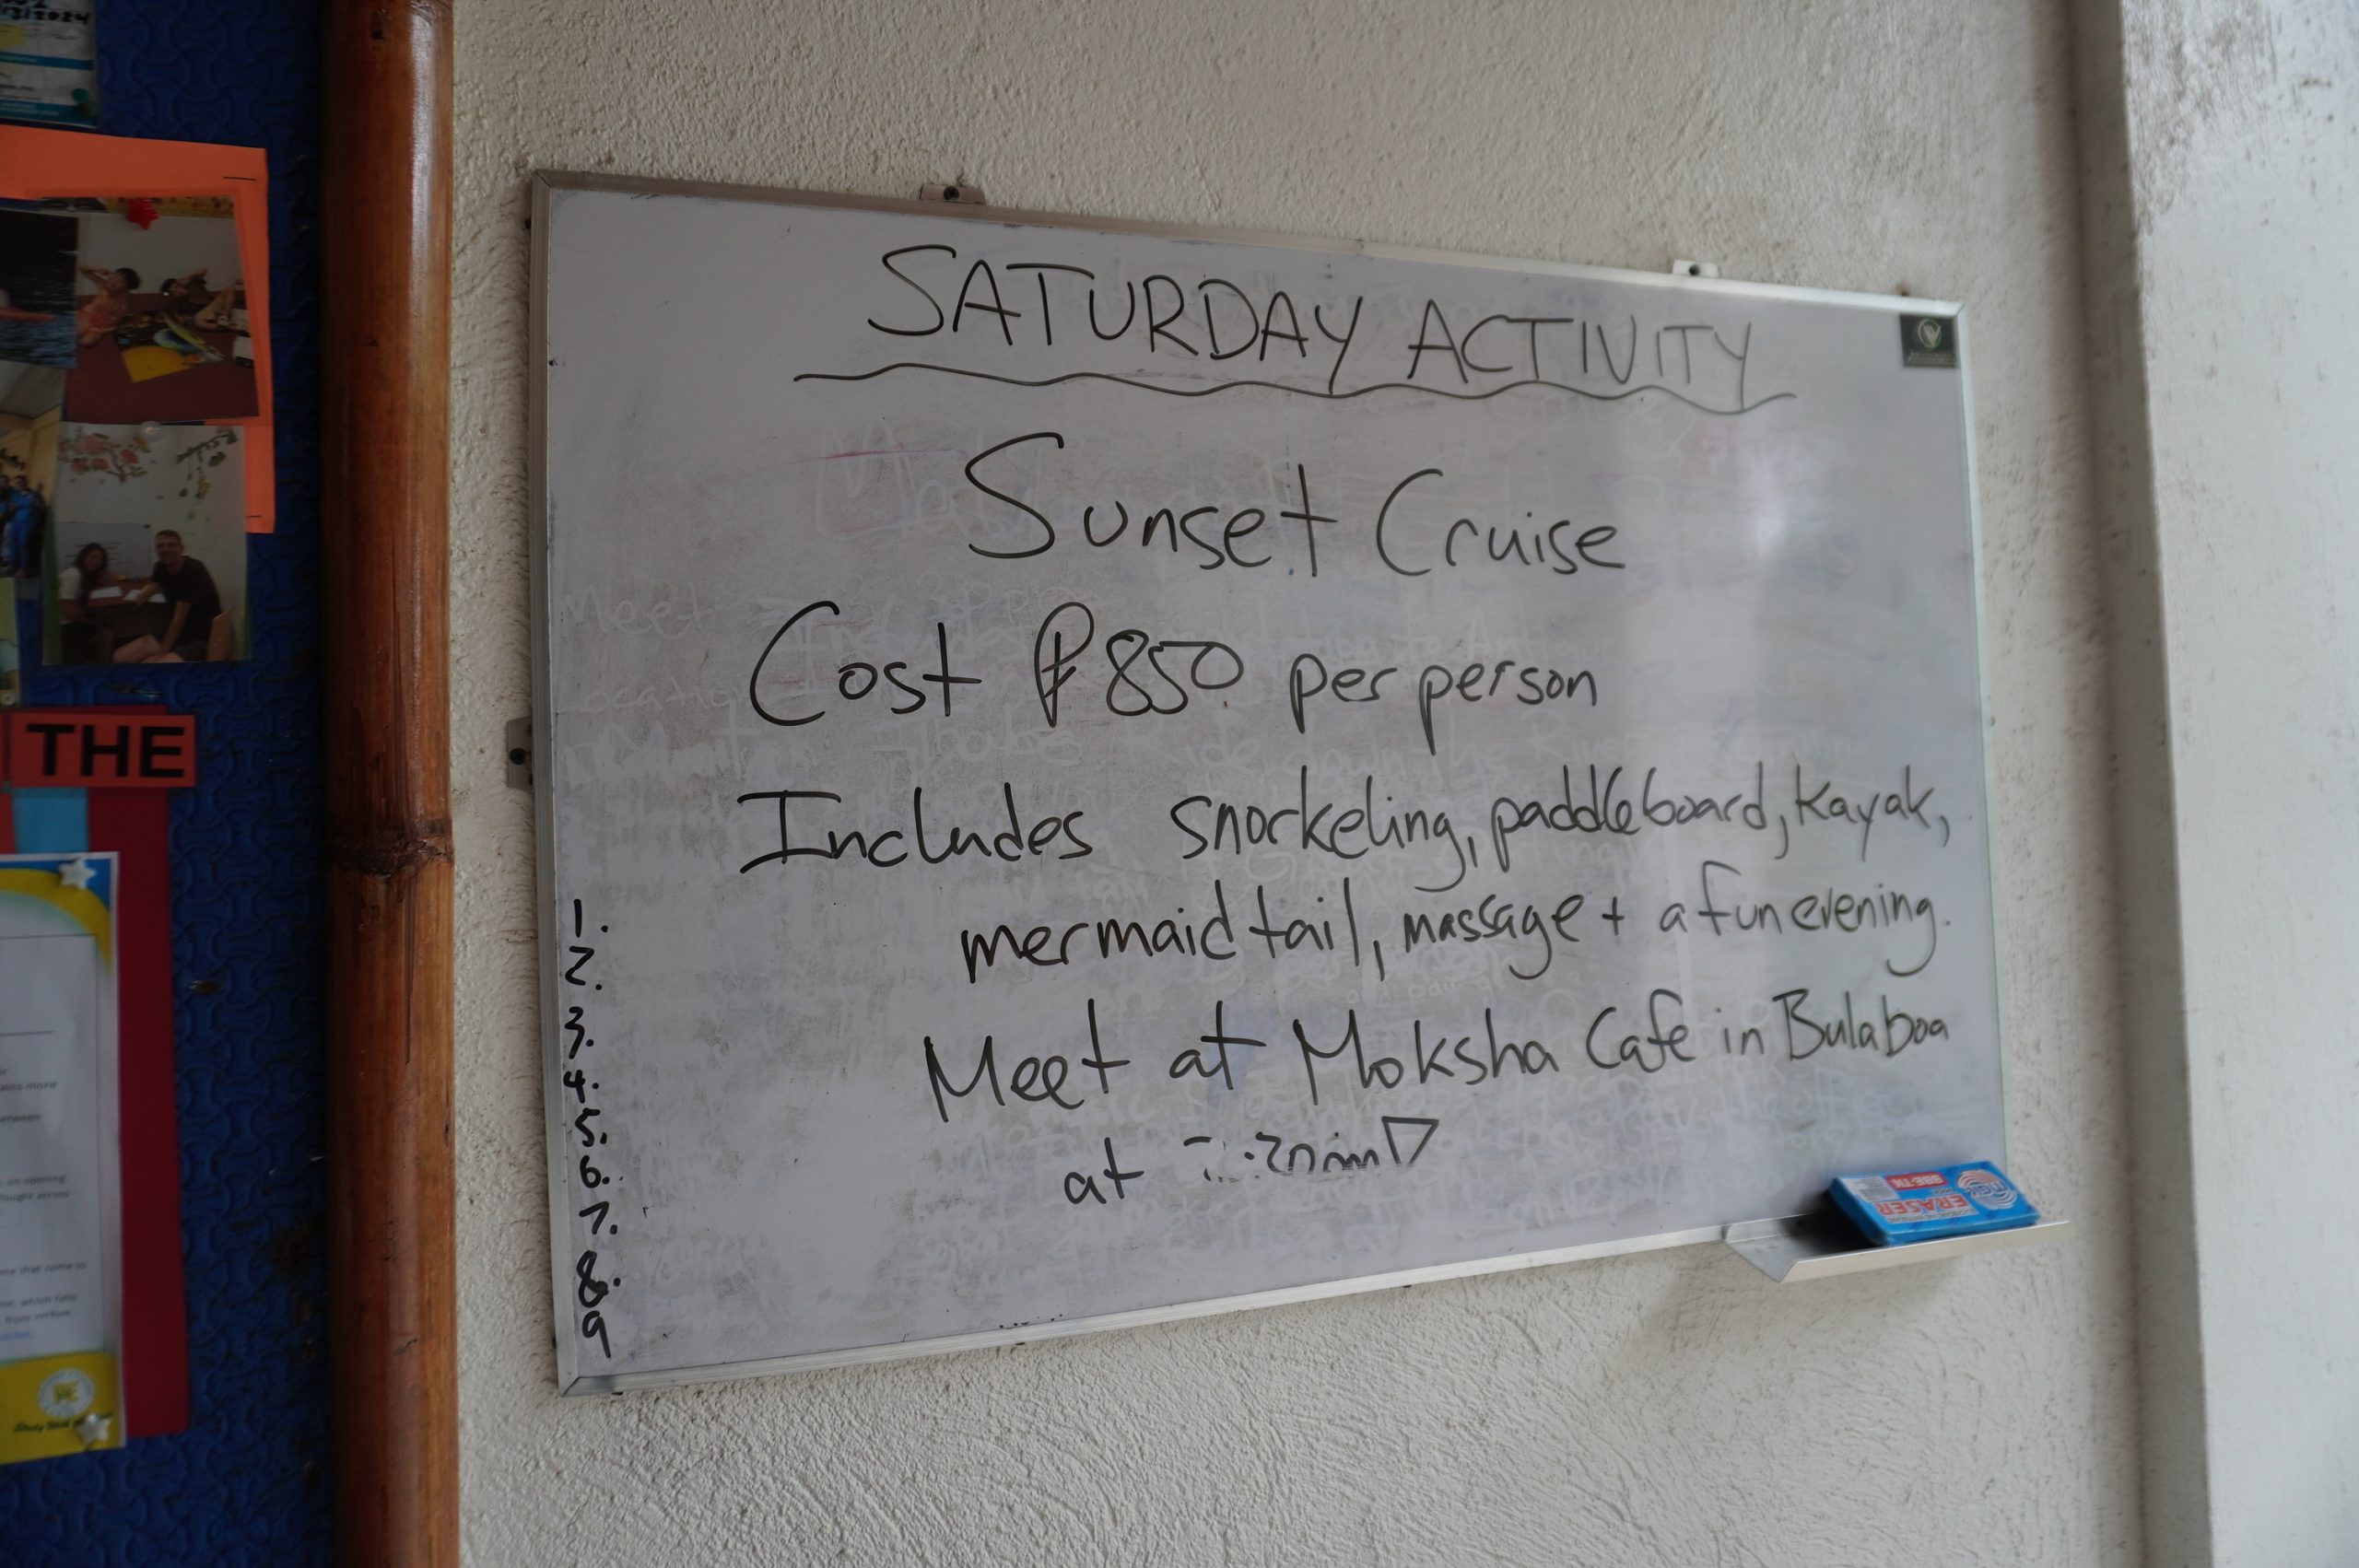 THE
SATURDAY ACTIVITY
Sunset Cruise
Cost ₱850 per person
Includes snorkeling, paddleboard, kayak,
mermaid tail, massage + a fun evening.
Meet at Moksha Cafe in Bulaboa
at
1.
2.
3.
4.
5.
6.
7.
8.
9
ERASER